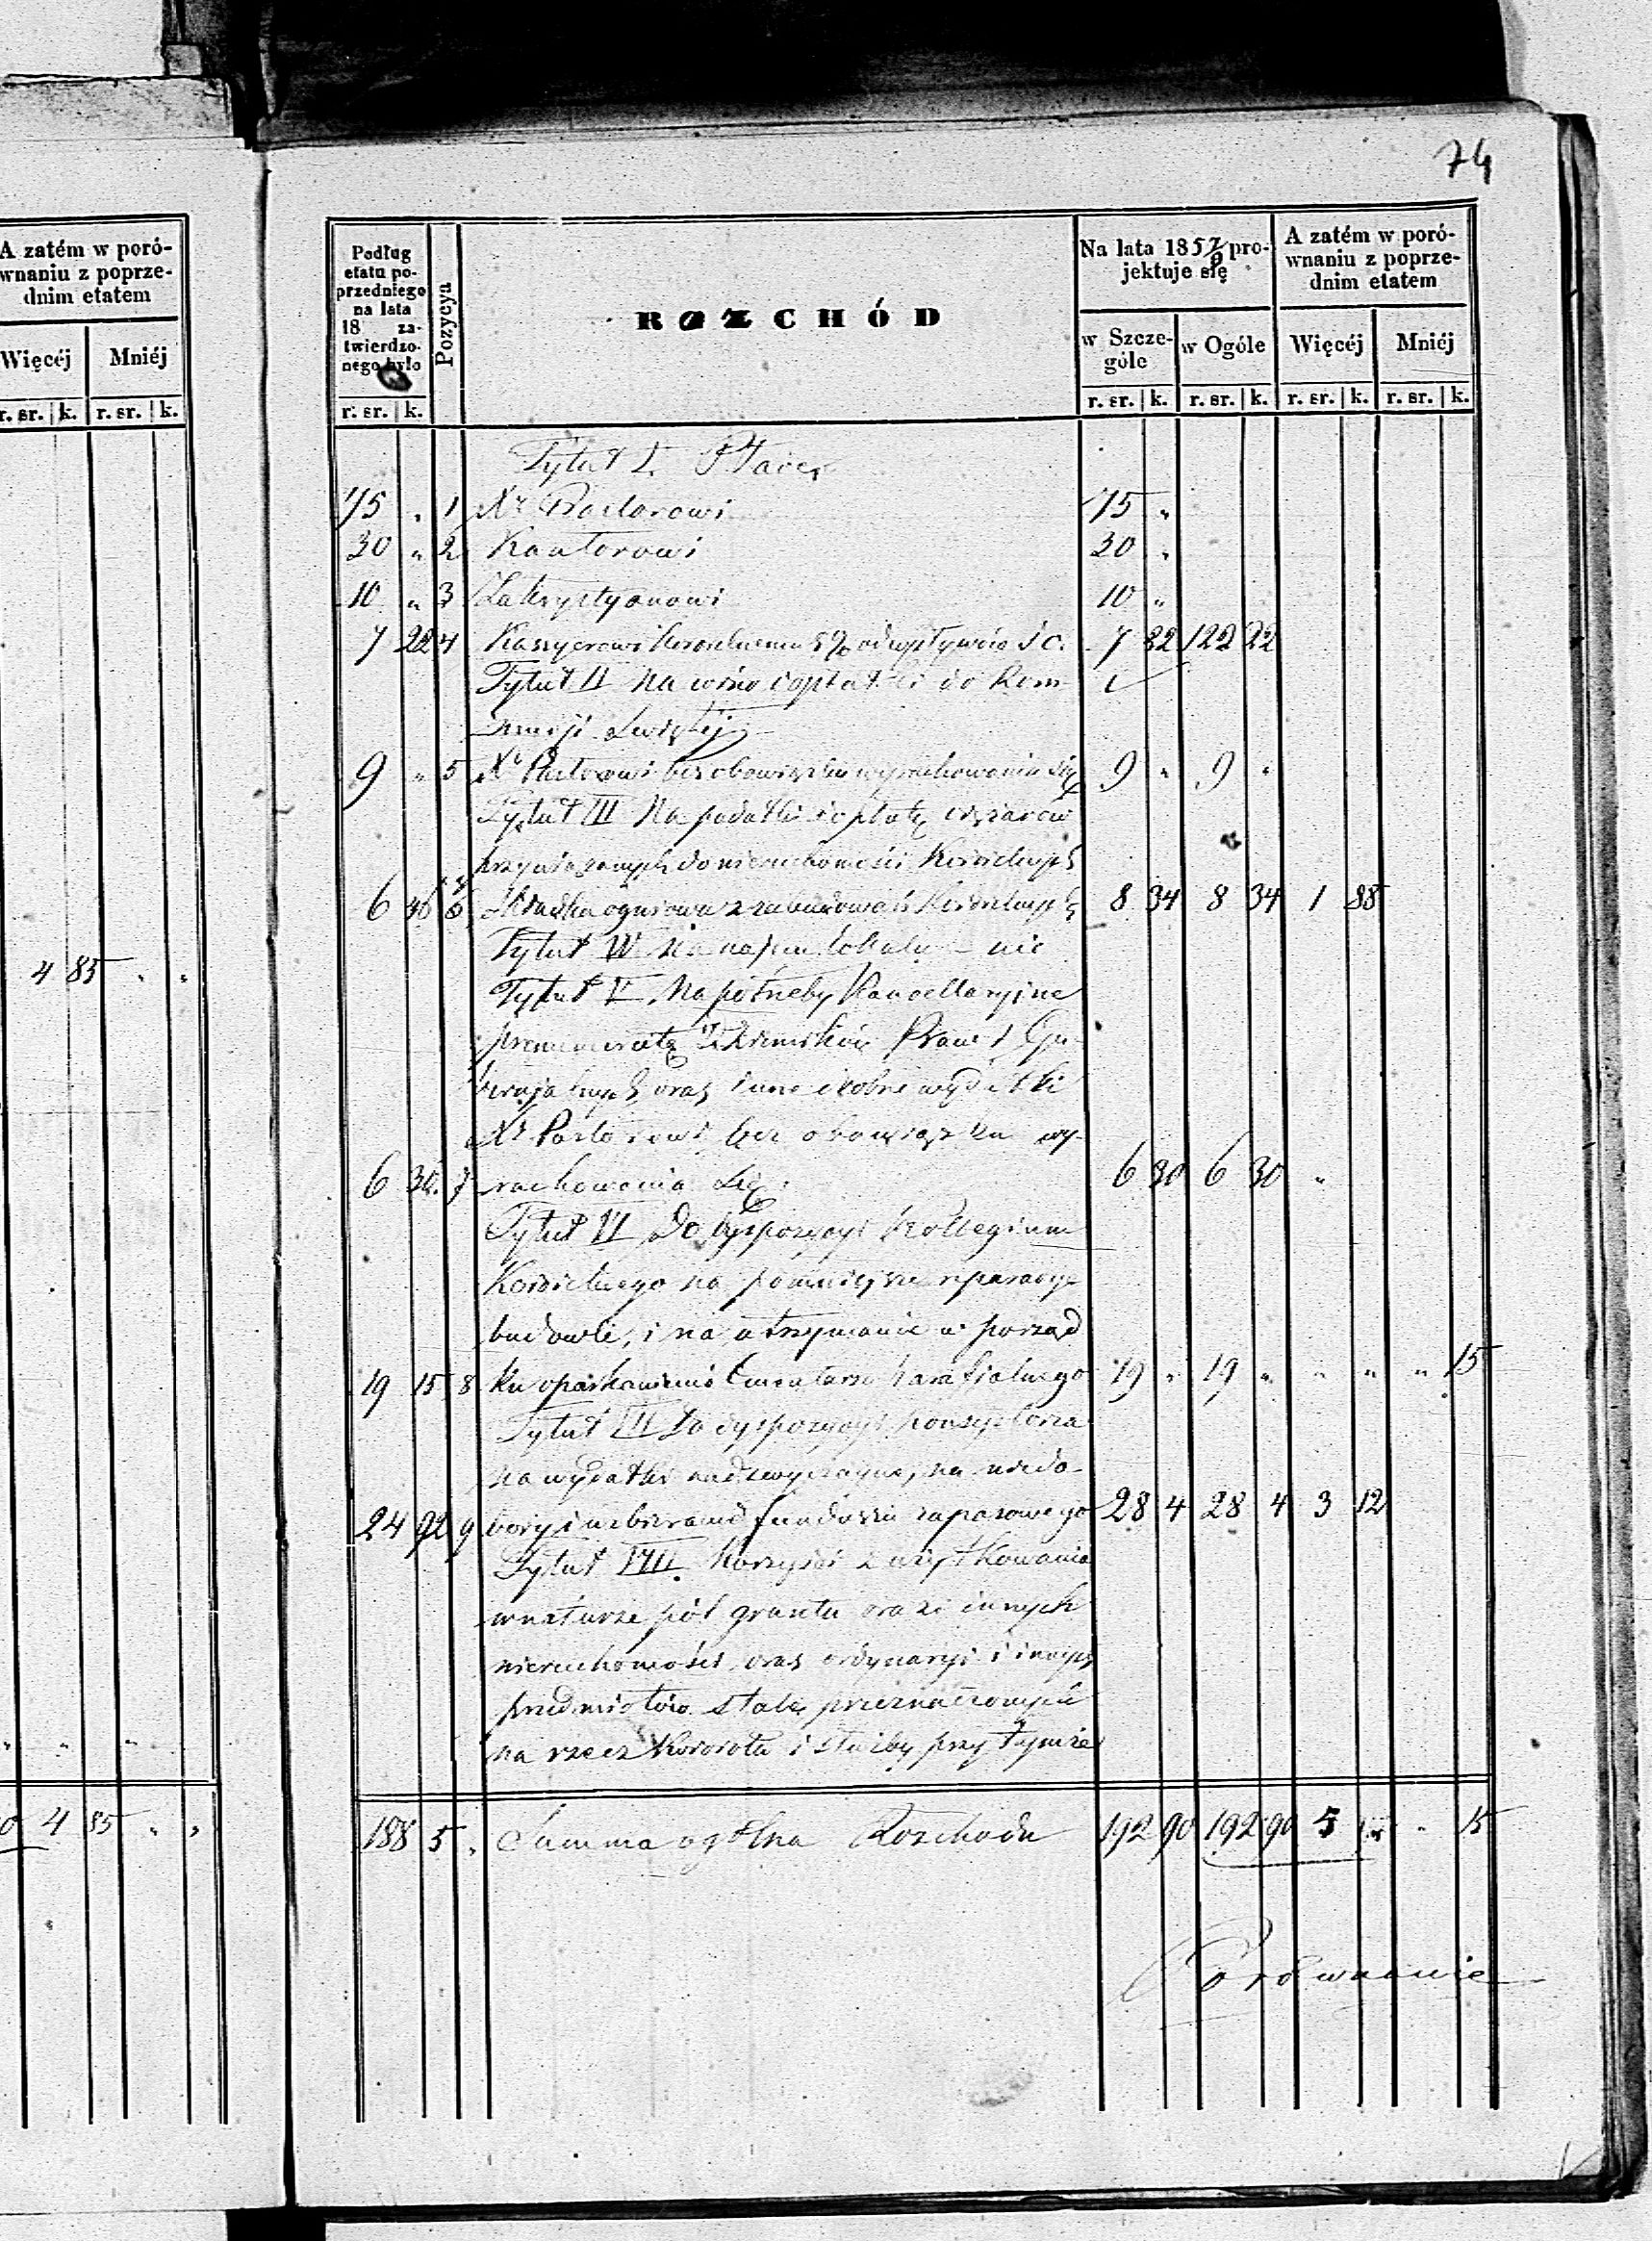 74
A zatém w poró-
wnaniu z poprze-
dnim etatem
Więcéj Mniéj
r. sr. k. r. sr. k.
4 85 " "
" " "
0 4 85 " "
Podług
etatu po-
przedniego
na lata
18 za-
twierdzo-
nego było
r. sr. k.
Pozycya
ROZCHÓD
Na lata 185 pro-
jektuje się
w Szcze-
góle
w Ogóle
r. sr. k. r. sr. k.
A zatém w poró-
wnaniu z poprze-
dnim etatem
Więcéj Mniéj
r. sr. k. r. sr. k.
Tytuł I. Płace
75 " 1 Xr Pastorowi 75 "
30 " 2 Kantorowi 30 "
10 " 3 Zakrystyanowi 10 "
7 22 4 Kassyerowi 5% od wpływów 7 22 122 22
Tytuł II Na wino i opłatki do Kom-
munji Świętéj
9 " 5 Xr Pastorowi bez obowiązku wyrachowania się 9 " 9 "
Tytuł III Na podatki i opłatę ciężarów
przywiązanych do nieruchomości Kościelnych
6 46 6 Składka ogniowa z zabudowań Kościelnych 8 34 8 34 1 88
Tytuł IV Na najem lokalu – nic
Tytuł V. Na potrzeby Kancellaryjne
prenumeratę Dzienników Praw i Gu-
bernjalnych oraz inne drobne wydatki
Xr Pastorowi bez obowiązku wy-
6 30 7 rachowania się. 6 30 6 30 "
Tytuł VI Do dyspozycyi Kollegium
Kościelnego na pomniejsze reparacye
budowli, i na utrzymanie w porząd
19 15 8 ku oparkanienia Cmentarza Parafjalnego 19 " 19 " " " " 15
Tytuł VII Do dyspozycyi Konsystorza
na wydatki nadzwyczajne, na niedo-
24 92 9 bory i uzbieranie funduszu zapasowego 28 4 28 4 3 12
Tytuł VIII. Korzyści z użytkowania
w naturze pól gruntu oraz innych
nieruchomości, oraz ordynaryi i innych
przedmiotów stale przeznaczonych
na rzecz Kościoła i służby przy tymże
188 5 " Summa ogólna Rozchodu 192 90 192 90 5 " 15
Porównanie